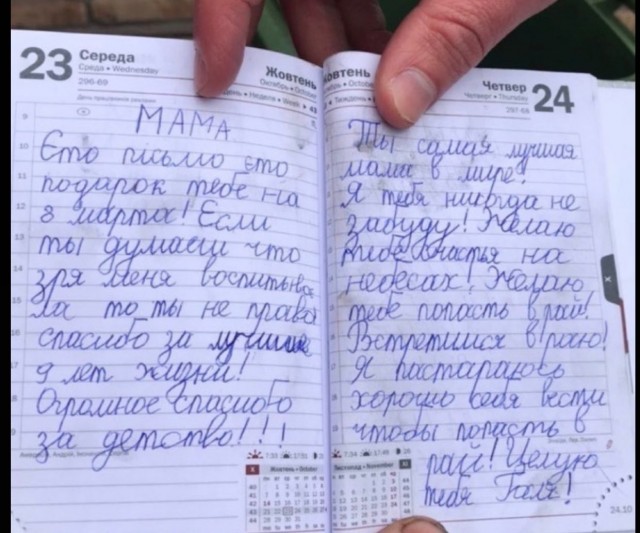 23 Середа
Среда • Wednesday
296-69
Жовтень
Октябрь • October
Неделя • Week
МАМА
Єто письмо єто
подарок тебе на
8 марта! Если
ты думаеш что
зря меня воспитыва
ла то ты не права
спасибо за лучшие
9 лет жизни!
Огромное спасибо
за детство!!!
7:33 17:51
Жовтень • October
Жовтень
Октябрь • October
Четвер 24
Четверг • Thursday
297-68
Ты самая лучшая
мама в мире!
Я тебя никогда не
забуду! Желаю
тебе счастья на
небесах! Желаю
тебе попасть в рай!
Встретимся в раю!
Я пастараюсь
хорошо себя вести
чтобы попасть в
рай! Целую
тебя Галя!
7:34 17:49
Листопад • November
24.10